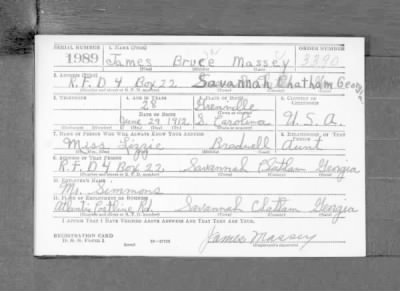 SERIAL NUMBER 1. NAME (Print) ORDER NUMBER
1989 James Bruce Massey 3390
(First) (Middle) (Last)
2. ADDRESS (Print)
R.F.D 4 Box 22 Savannah Chatham Georgia
(Number and street or R. F. D. number) (Town) (County) (State)
3. TELEPHONE 4. AGE IN YEARS 5. PLACE OF BIRTH 6. COUNTRY OF CITIZENSHIP
28 Greenville
DATE OF BIRTH
June 29 1912 S. Carolina U.S.A.
(Exchange) (Number) (Mo.) (Day) (Yr.) (State or country)
7. NAME OF PERSON WHO WILL ALWAYS KNOW YOUR ADDRESS 8. RELATIONSHIP OF THAT PERSON
Miss Lizzie Bradwell Aunt
(Mr., Mrs., Miss) (First) (Middle) (Last)
9. ADDRESS OF THAT PERSON
R.F.D 4 Box 22 Savannah Chatham Georgia
(Number and street or R. F. D. number) (Town) (County) (State)
10. EMPLOYER'S NAME
Mr. Simmons
11. PLACE OF EMPLOYMENT OR BUSINESS
Atlantic Rd. Savannah Chatham Georgia
(Number and street or R. F. D. number) (Town) (County) (State)
I AFFIRM THAT I HAVE VERIFIED ABOVE ANSWERS AND THAT THEY ARE TRUE.
REGISTRATION CARD
D. S. S. Form 1 James Massey
(Registrant's signature)